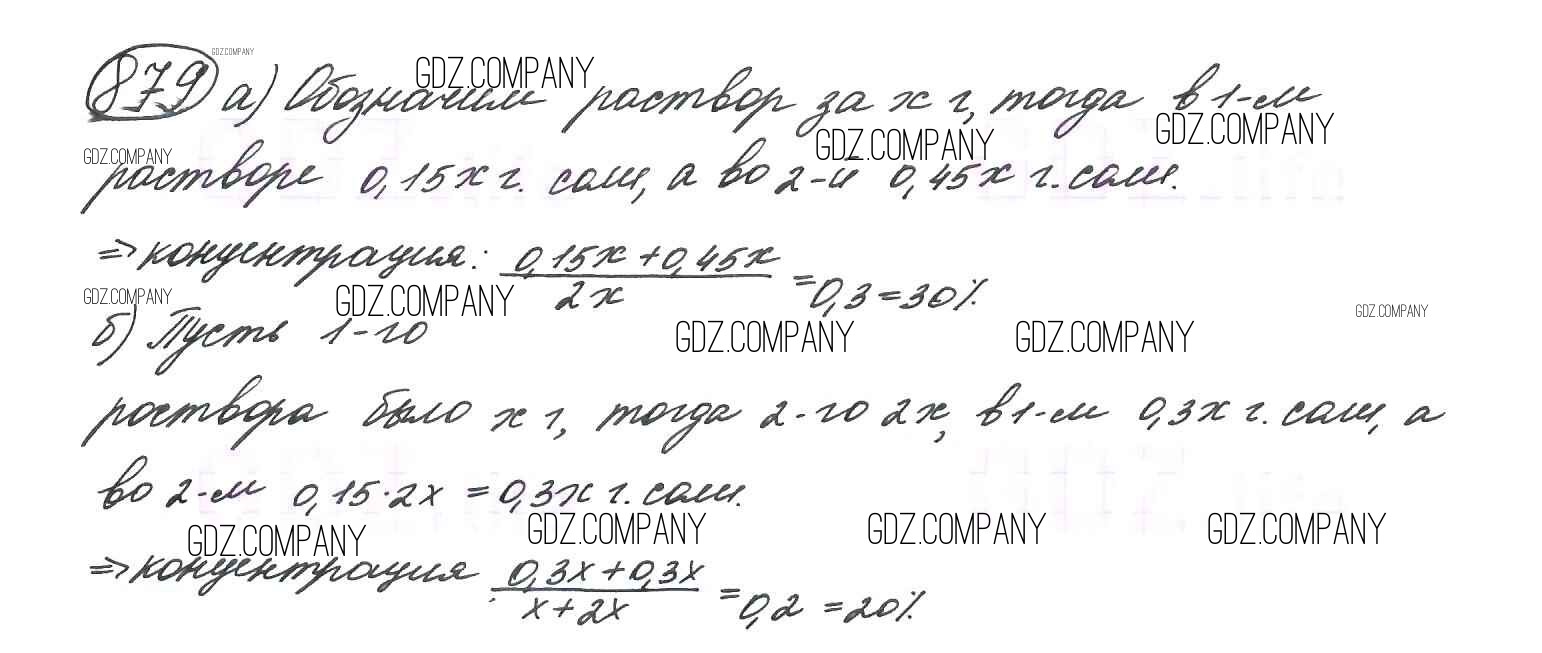 879 а) Обозначим раствор за x г, тогда в 1-м
растворе 0,15x г. соли, а во 2-й 0,45x г. соли.
⇒ концентрация: (0,15x + 0,45x)/2x = 0,3 = 30%
б) Пусть 1-го
раствора было x г, тогда 2-го 2x, в 1-м 0,3x г. соли, а
во 2-м 0,15·2x = 0,3x г. соли.
⇒ концентрация (0,3x + 0,3x)/(x + 2x) = 0,2 = 20%
GDZ.COMPANY
GDZ.COMPANY
GDZ.COMPANY
GDZ.COMPANY
GDZ.COMPANY
GDZ.COMPANY
GDZ.COMPANY
GDZ.COMPANY
GDZ.COMPANY
GDZ.COMPANY
GDZ.COMPANY
GDZ.COMPANY
GDZ.COMPANY
GDZ.COMPANY